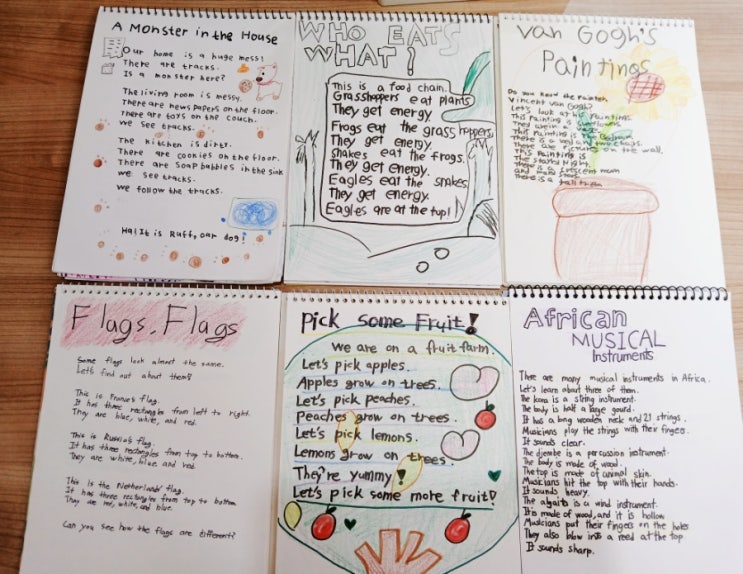 A Monster in the House
Our home is a huge mess!
There are tracks.
Is a monster here?
The living room is messy.
There are newspapers on the floor.
There are toys on the couch.
We see tracks.
The kitchen is dirty.
There are cookies on the floor.
There are soap bubbles in the sink
We see tracks.
We follow the tracks.
Ha! It is Ruff, our dog!
WHO EATS
WHAT?
This is a food chain.
Grasshoppers eat plants
They get energy.
Frogs eat the grasshoppers
They get energy.
Snakes eat the frogs.
They get energy.
Eagles eat the snakes
They get energy.
Eagles are at the top!
Van Gogh's
Paintings
Do you know the painter
Vincent van Gogh?
Let's look at his paintings.
This painting is Sunflowers.
They are in a vase.
This painting is The Bedroom
There is a bed and two chairs.
There are pictures on the wall.
This painting is
The Starry Night.
There is a crescent moon
and many stars.
There is a tall
Flags, Flags
Some flags look almost the same.
Let's find out about them?
This is France's flag.
It has three rectangles from left to right.
They are blue, white, and red.
This is Russia's flag.
It has three rectangles from top to bottom.
They are white, blue and red.
This is the Netherlands' flag.
It has three rectangles from top to bottom
They are red, white, and blue.
Can you see how the flags are different?
Pick Some Fruit!
We are on a fruit farm.
Let's pick apples.
Apples grow on trees.
Let's pick peaches.
Peaches grow on trees.
Let's pick lemons.
Lemons grow on trees.
They're yummy!
Let's pick some more fruit!
African
MUSICAL
Instruments
There are many musical instruments in Africa.
Let's learn about three of them.
The kora is a string instrument.
The body is half a large gourd.
It has a long wooden neck and 21 strings.
Musicians play the strings with their fingers.
It sounds clear.
The djembe is a percussion instrument.
The body is made of wood.
The top is made of animal skin.
Musicians hit the top with their hands.
It sounds heavy.
The algaita is a wind instrument.
It is made of wood, and it is hollow
Musicians put their fingers on the holes
They also blow into a reed at the top
It sounds sharp.